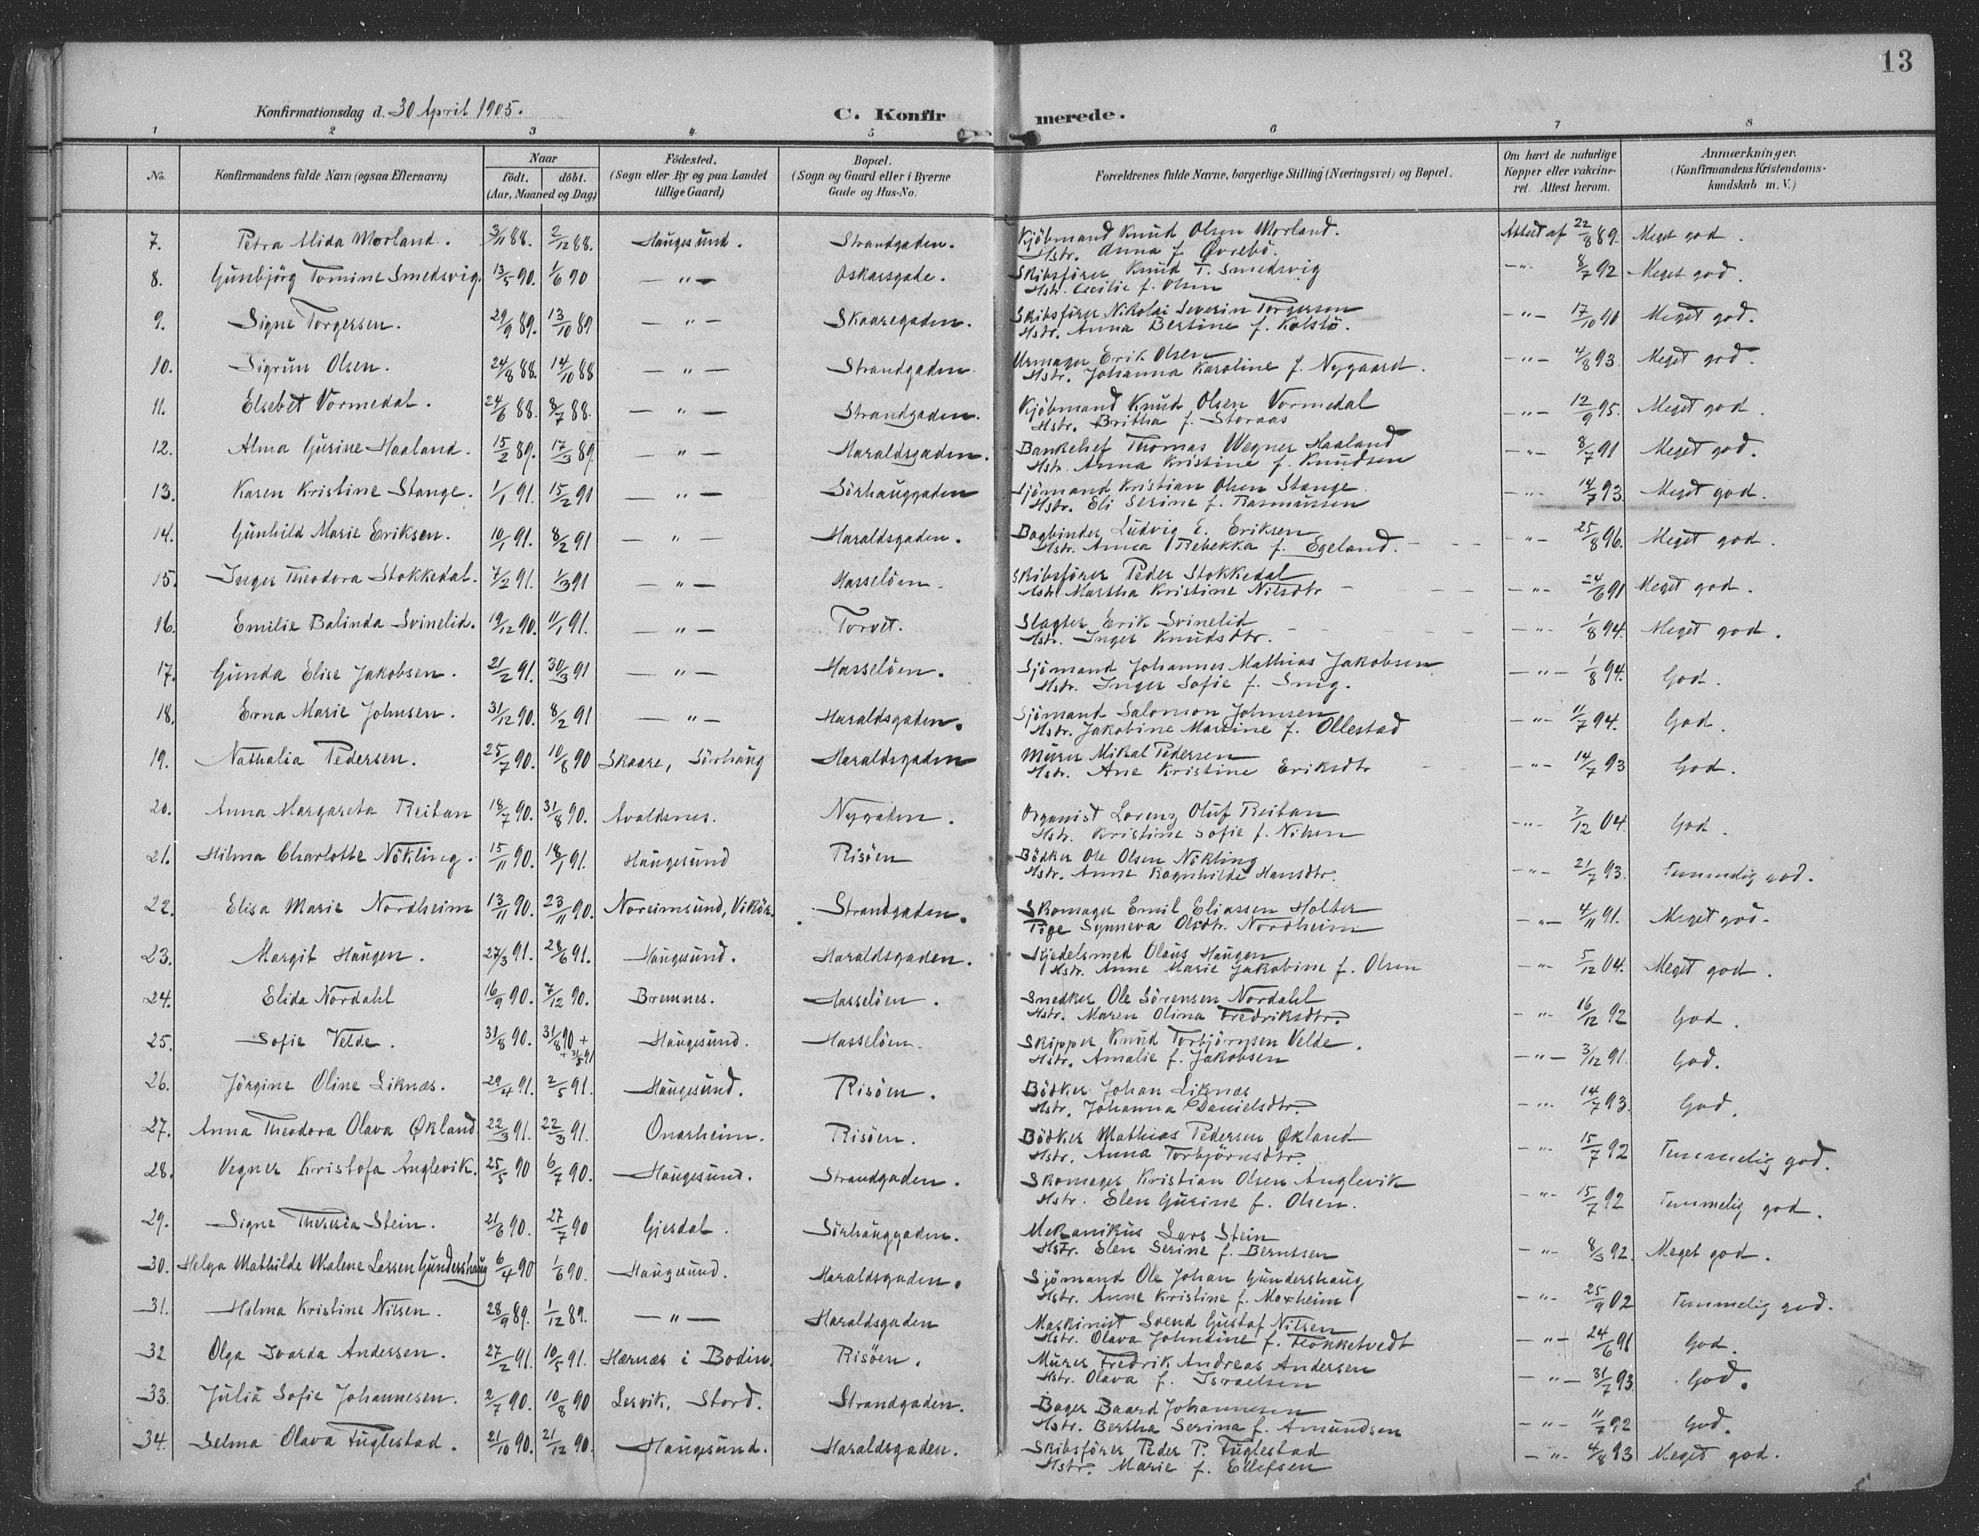 13
Konfirmationsdag d. 30 April 1905.
C. Konfirmerede.
1 2 3 4 5 6 7 8
No. Konfirmandens fulde Navn (ogsaa Efternavn) Naar født. døbt. (Aar, Maaned og Dag) Fødested. (Sogn eller By og paa Landet tillige Gaard) Bopæl. (Sogn og Gaard eller i Byerne Gade og Hus-No. Forældrenes fulde Navne, borgerlige Stilling (Næringsvei) og Bopæl. Om havt de naturlige Kopper eller vakcineret. Attest herom. Anmærkninger. (Konfirmandens Kristendomskundskab m. V.)
7. Petra Alida Mørland. 3/11 88. 2/12 88. Haugesund. Strandgaden. Kjøbmand Knud Olsen Mørland. Attest af 22/8 89. Meget god.
Hstr. Anna f. Øvrebö.
8. Gunbjörg Tomine Smedsvig. 13/5 90. 1/6 90 — " — Oskarsgade. Skibsförer Knud T. Smedsvig — " — 8/7 92 Meget god.
Hstr. Cecilie f. Olsen
9. Signe Torgersen. 29/9 89. 13/10 89 — " — Skaaregaden. Skibsförer Nikolai Severin Torgersen — " — 17/10 90 Meget god.
Hstr. Anna Bertine f. Kolstö.
10. Sigrun Olsen. 24/8 88. 14/10 88 — " — Strandgaden Urmager Erik Olsen — " — 4/8 93. Meget god.
Hstr. Johanna Karoline f. Nygaard.
11. Elsebet Vormedal. 24/6 88. 8/7 88. — " — Strandgaden. Kjöbmand Knud Olsen Vormedal — " — 12/9 95. Meget god.
Hstr. Britha f. Storaas
12. Alma Gurine Haaland. 15/2 89. 17/3 89. — " — Haraldsgaden. Bankchef Thomas Wegner Haaland — " — 8/7 91 Meget god.
Hstr. Anna Kristine f. Knudsen
13. Karen Kristine Stange. 1/1 91. 15/2 91 — " — Sörhauggaden Sjömand Kristian Olsen Stange — " — 14/7 93 Meget god.
Hstr. Eli Serine f. Rasmussen
14. Gunhild Marie Eriksen. 10/1 91. 8/2 91 — " — Haraldsgaden. Bogbinder Ludvig E. Eriksen — " — 25/8 96. Meget god.
Hstr. Anna Rebekka f. Egeland.
15. Inger Theodora Stokkedal. 7/2 91. 1/3 91 — " — Hasselöen. Skibsförer Peder Stokkedal — " — 24/6 91 Meget god.
Hstr. Martha Kristine Nilsdtr
16. Emilie Balinda Svinelid. 19/12 90. 11/1 91. — " — Torvet. Slagter Erik Svinelid — " — 1/8 94. Meget god.
Hstr. Inger Knudsdtr.
17. Gunda Elise Jakobsen. 21/2 91. 30/3 91 — " — Hasselöen. Sjömand Johannes Mathias Jakobsen — " — 1/8 94. God.
Hstr. Inger Sofie f.
18. Erna Marie Johnsen. 31/12 90. 8/2 91 — " — Haraldsgaden. Sjömand Salomon Johnsen — " — 11/7 94. God.
Hstr. Jakobine Martine f. Ollestad
19. Nathalia Pedersen. 25/7 90. 10/8 90 Skaare, Sörhaug Haraldsgaden Murer Mikal Pedersen — " — 14/7 93 God.
Hstr. Ane Kristine Eriksdtr
20. Anna Margareta Reitan 18/7 90. 31/8 90. Avaldsnes. Nygaden. Organist Lorenz Oluf Reitan — " — 7/12 04. God.
Hstr. Kristine Sofie f. Nilsen
21. Hilma Charlotte Nökling. 15/11 90. 18/1 91. Haugesund Risöen Bödker Ole Olsen Nökling — " — 21/7 93. Temmelig god.
Hstr. Anne Ragnhilde Hansdtr.
22. Elisa Marie Nordheim 13/11 90. 23/11 90. Noreimsund, Vikör. Strandgaden. Skomager Emil Eliassen Holter — " — 4/11 91. Meget god.
Pige Synneva Olsdtr. Nordheim
23. Margit Haugen. 27/3 91. 28/6 91. Haugesund. Haraldsgaden. Kjedelsmed Olaus Haugen — " — 5/12 04. Meget god.
Hstr. Anne Marie Jakobine f. Olsen
24. Elida Nordahl 16/9 90. 7/12 90. Bremnes. Hasselöen. Snedker Ole Sörensen Nordahl — " — 16/12 92 God.
Hstr. Maren Olina Fredriksdtr.
25. Sofie Velde. 31/8 90. 31/8 90 + Haugesund. Hasselöen. Skipper Knud Torbjörnsen Velde. — " — 3/12 91. God.
+ 31/5 91 Hstr. Amalie f. Jakobsen
26. Jörgine Oline Liknæs. 29/4 91. 2/5 91. Haugesund. Risöen. Bödker Johan Liknæs — " — 14/7 93. God.
Hstr. Johanna Danielsdtr.
27. Anna Theodora Olava Økland. 22/3 91. 22/3 91. Onarheim. Risöen. Bödker Mathias Pedersen Økland — " — 15/7 92 Temmelig god.
Hstr. Anna Torbjörnsdtr.
28. Vegner Kristofa Anglevik. 25/5 90 6/7 90. Haugesund. Strandgaden. Skomager Kristian Olsen Anglevik — " — 15/7 92 Temmelig god.
Hstr. Elen Gurine f. Olsen.
29. Signe Theresia Stein. 21/6 90. 27/7 90 Gjesdal. Sörhauggaden. Mekanikus Lars Stein — " — 8/3 92. Meget god.
Hstr. Elen Serine f. Berntsen
30. Helga Mathilde Malene Larsen Gundershaug 6/4 90 1/6 90. Haugesund. Haraldsgaden. Sjömand Ole Johan Gundershaug — " — 25/9 02 Temmelig god.
Hstr. Anne Kristine f. Moxheim
31. Hilma Kristine Nilsen. 28/9 89. 1/12 89. — " — Haraldsgaden Maskinist Svend Gustaf Nilsen — " — 24/6 91 God.
Hstr. Olava Johndine f. Flokketvedt
32 Olga Ivarda Andersen. 27/2 91. 10/5 91. Hernæs i Bodin. Risöen. Murer Fredrik Andreas Andersen — " — 31/7 93. God.
Hstr. Olava f. Israelsen
33. Julia Sofie Johannesen. 2/7 90. 10/8 90 Lervik, Stord. Strandgaden. Bager Baard Johannesen — " — 11/7 92 God.
Hstr. Bertha Serina f. Amundsen
34. Selma Olava Fuglestad. 21/10 90. 21/12 90. Haugesund. Haraldsgaden. Skibsförer Peder P. Fuglestad — " — 4/8 93 Meget god.
Hstr. Marie f. Ellefsen